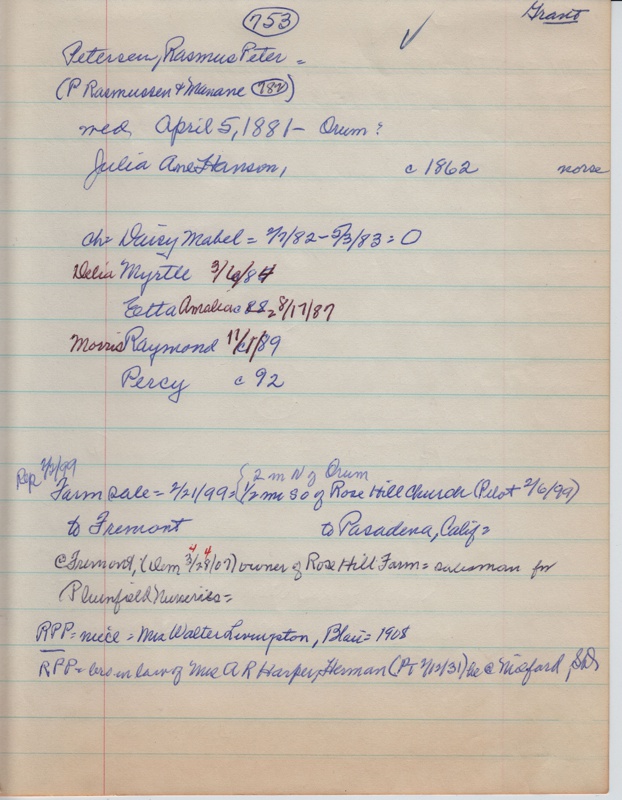 753
Grant
✓
Petersen, Rasmus Peter =
(P Rasmussen & Manane 782)
med, April 5, 1881 - Orum?
Julia Ane Hanson, c 1862 norse
ch = Daisy Mabel = 2/7/82 - 5/3/83 = 0
Delia Myrtle 3/6/84
Etta Amalia c 88 = 8/17/87
Morris Raymond 11/1/89
Percy c 92
Rep 2/2/99
{2 m N of Orum
Farm sale = 2/21/99 = 1/2 m so of Rose Hill Church (Pilot 2/6/99)
to Fremont to Pasadena, Calif =
c Fremont, (Dem 3/28/07) owner of Rose Hill Farm = salesman for
4 4
Plumfield Nurseries =
RPP = niece = Mrs Walter Livingston, Blair = 1908
RPP = bro in law of Mrs A R Harper, Herman (PT 2/12/31) he c Mitford, SD